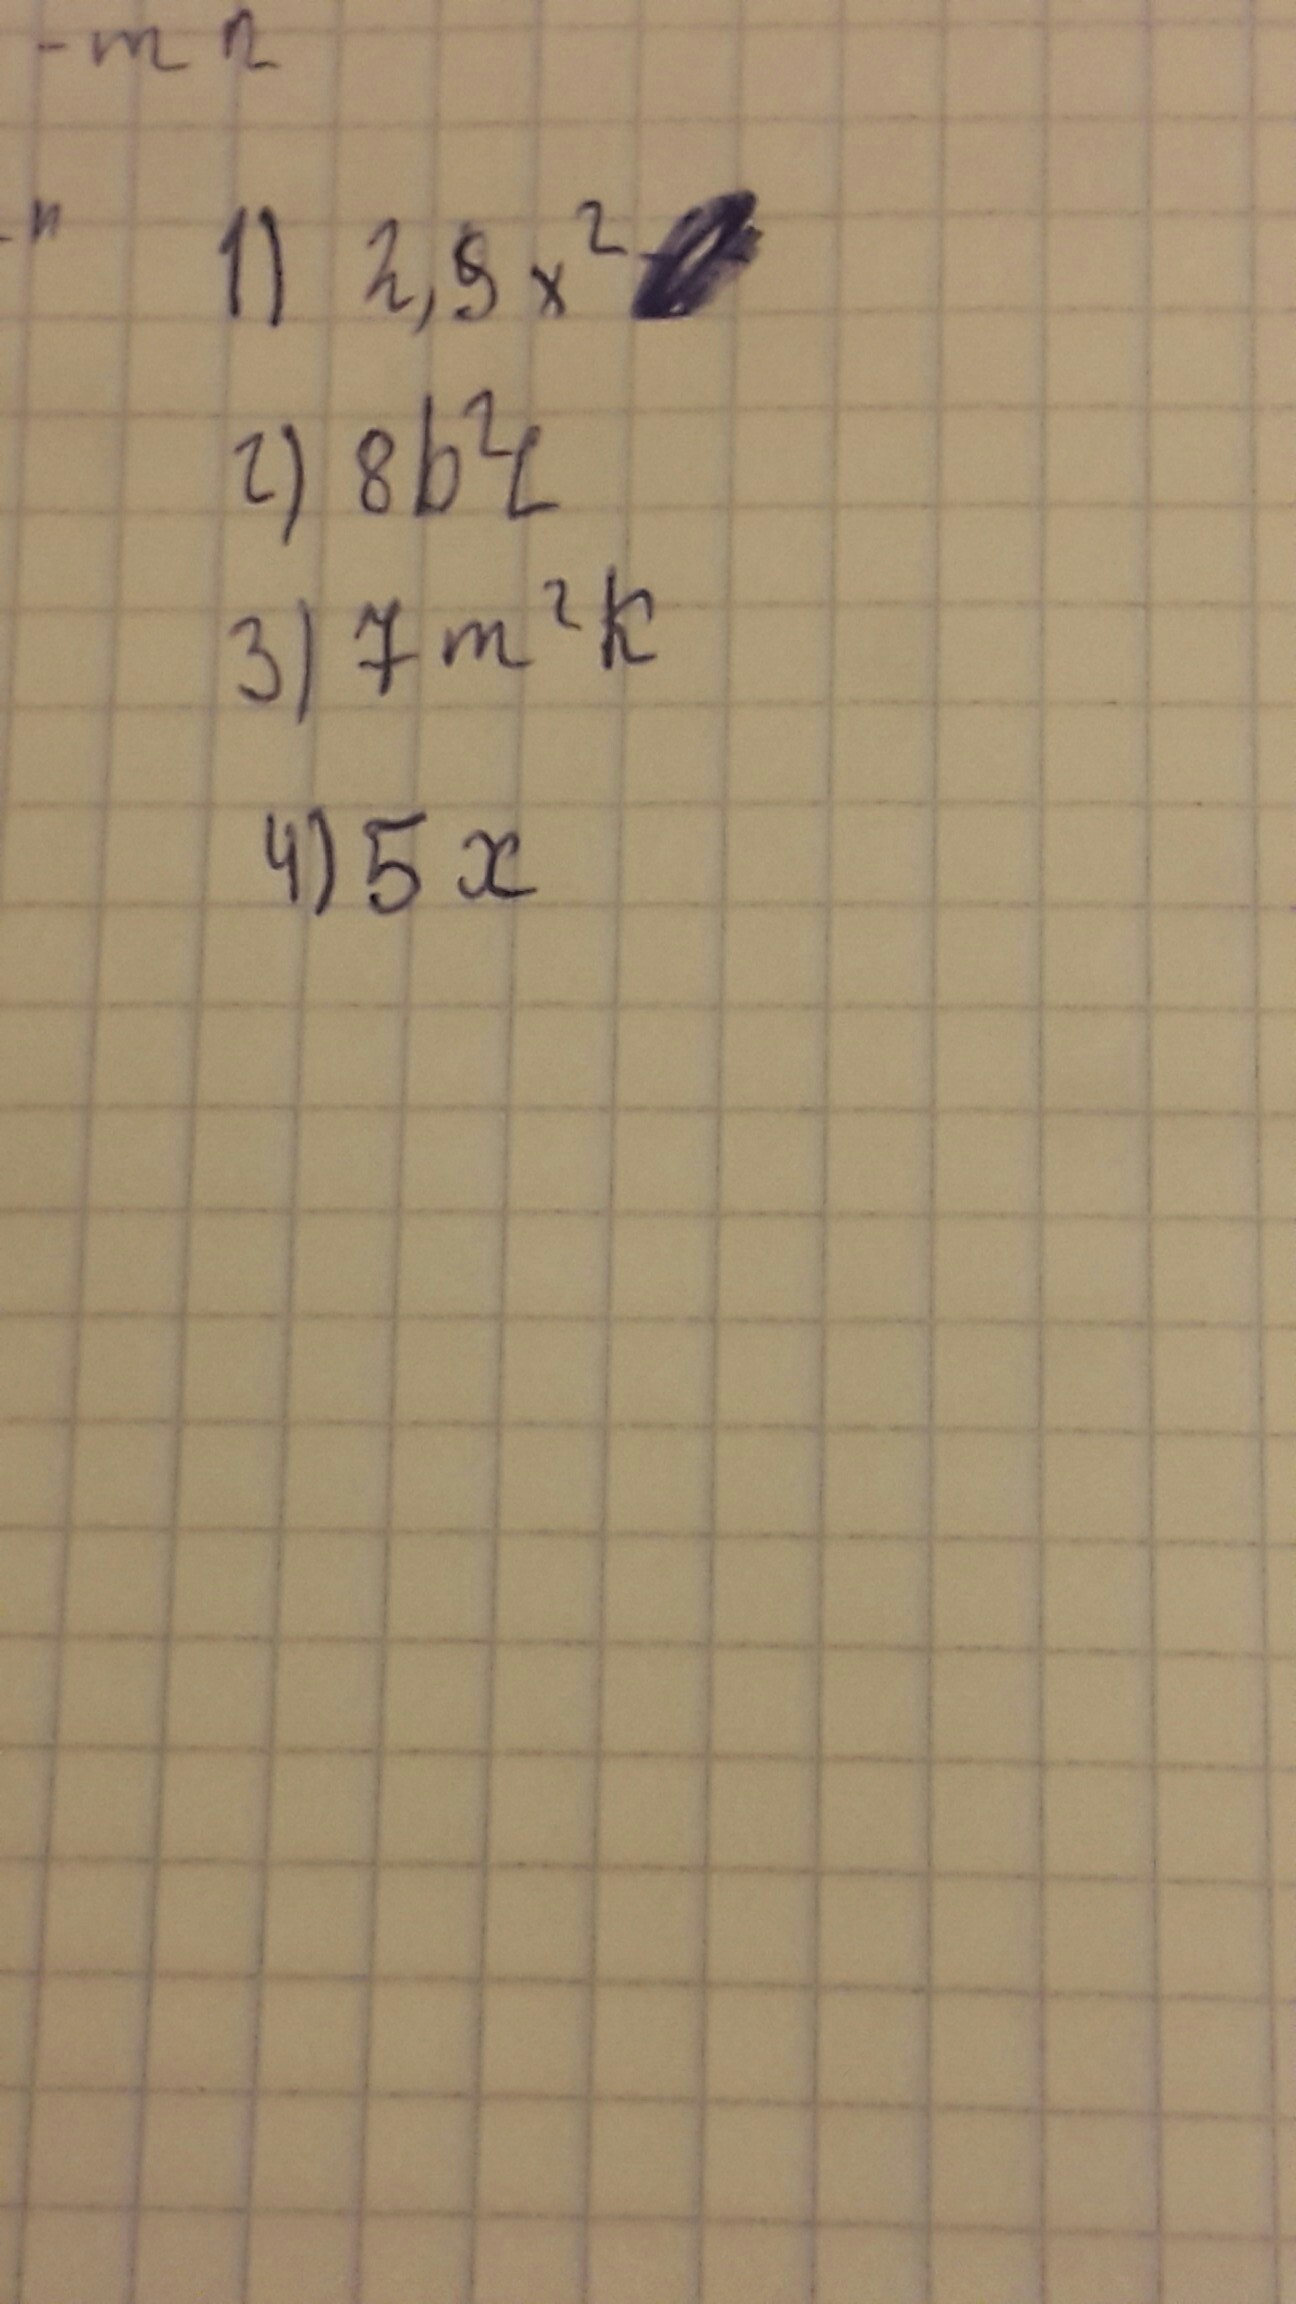 - m n
- n
1) 2,9 x²
2) 8b²
3) 7 m² k
4) 5 x